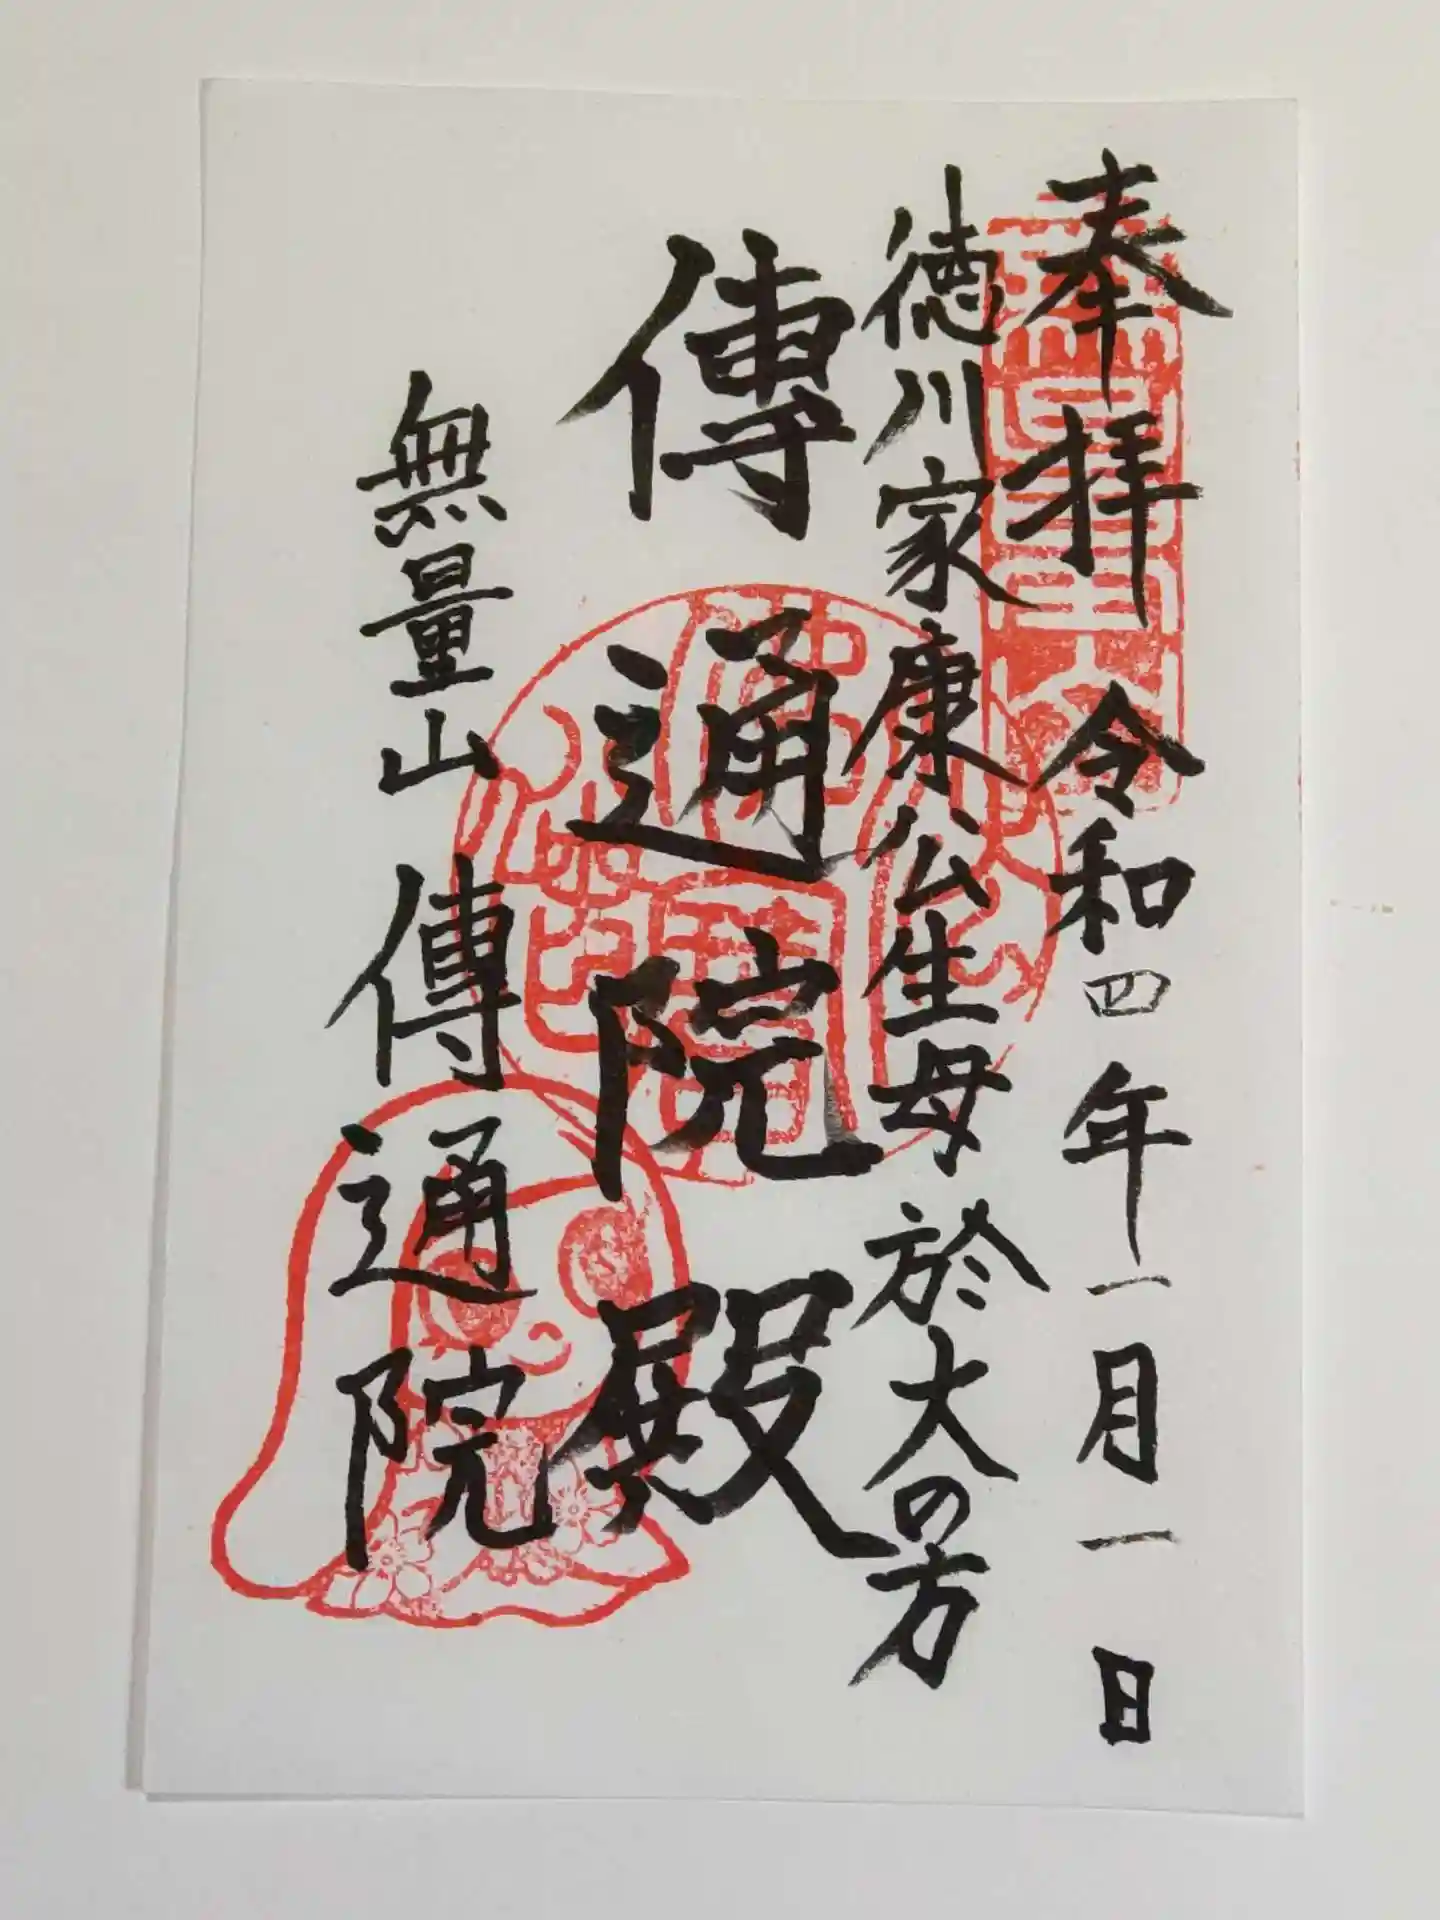 奉拝 令和四年一月一日
徳川家康公生母 於大の方
傳通院殿
無量山 傳通院